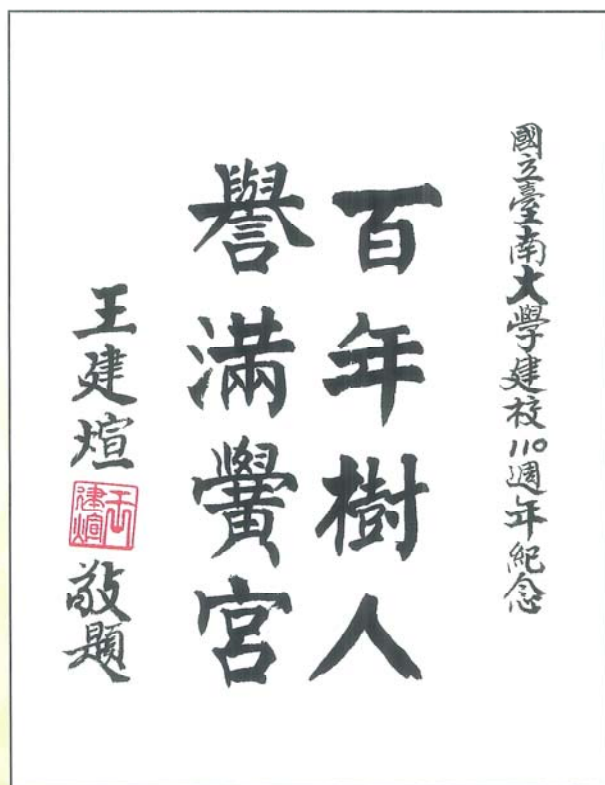 國立臺南大學建校110週年紀念
百年樹人
譽滿黌宮
王建煊
王建煊
敬題